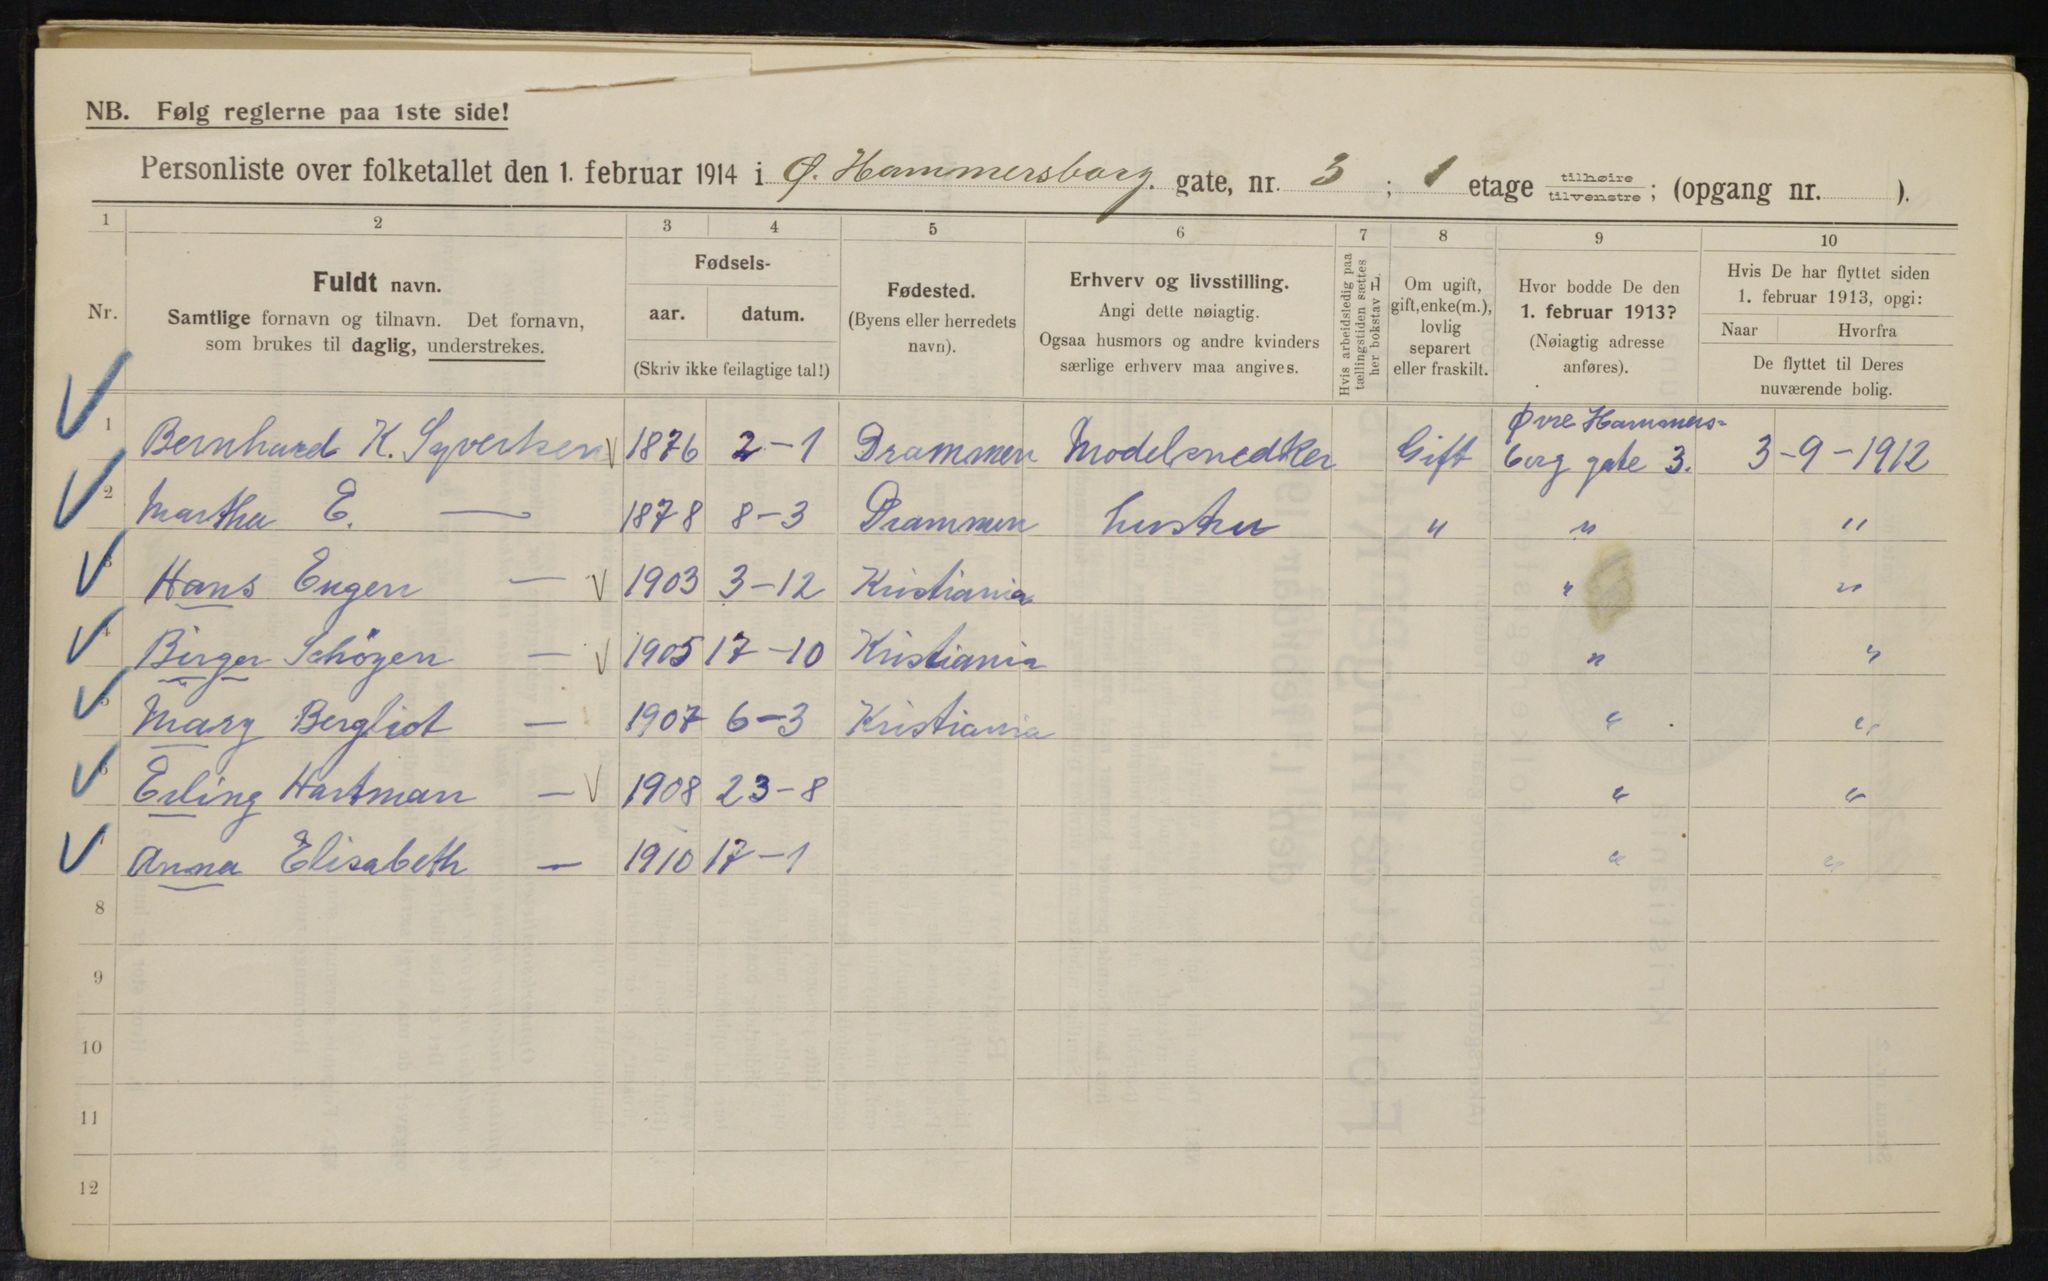 NB. Følg reglerne paa 1ste side!
Personliste over folketallet den 1. februar 1914 i Ø. Hammersborg. gate, nr. 3 ; 1 etage tilhøire tilvenstre ; (opgang nr. ).
1 2 3 4 5 6 7 8 9 10
Nr.
Fuldt navn.
Samtlige fornavn og tilnavn. Det fornavn,
som brukes til daglig, understrekes.
Fødsels-
aar. datum.
(Skriv ikke feilagtige tal!)
Fødested.
(Byens eller herredets
navn).
Erhverv og livsstilling.
Angi dette nøiagtig.
Ogsaa husmors og andre kvinders
særlige erhverv maa angives.
Hvis arbeidstedig paa
tællingstiden sættes
her bokstav L.
Om ugift,
gift, enke(m.),
lovlig
separert
eller fraskilt.
Hvor bodde De den
1. februar 1913?
(Nøiagtig adresse
anføres).
Hvis De har flyttet siden
1. februar 1913, opgi:
Naar Hvorfra
De flyttet til Deres
nuværende bolig.
1 Bernhard K. Syvertsen 1876 2-1 Drammen Modelsnedker Gift Øvre Hammers-
berg gate 3. 3-9-1912
2 Martha E. — 1878 8-3 Drammen hustru " " "
3 Hans Eugen — 1903 3-12 Kristiania " "
4 Birger Schöyen — 1905 17-10 Kristiania " "
5 Mary Bergliot — 1907 6-3 Kristiania " "
6 Erling Hartman — 1908 23-8 " "
Anna Elisabeth — 1910 17-1 " "
8
9
10
11
12